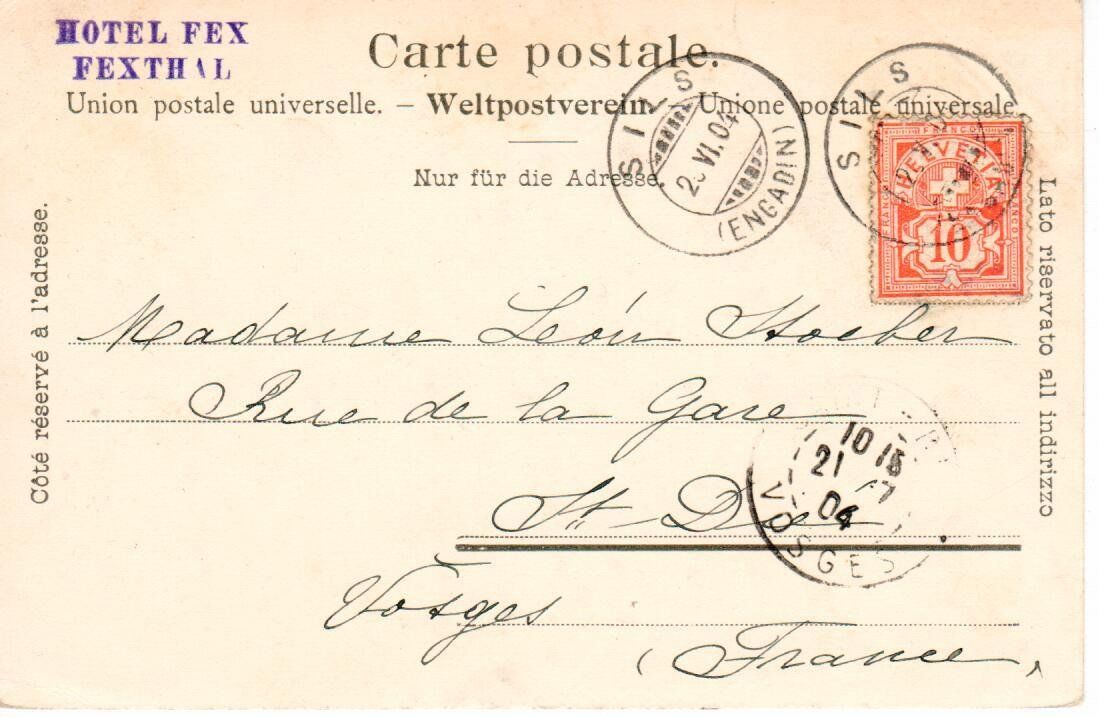 HOTEL FEX
FEXTHAL
Carte postale.
Union postale universelle. – Weltpostverein. – Unione postale universale
Nur für die Adresse.
SILS
VI.04
(ENGADIN)
SILS
FRANCO
HELVETIA
FRANCO
FRANCO
10
Côté réservé à l'adresse.
Lato riservato all indirizzo
Madame Léon Stoeber
Rue de la Gare
St Dié
Vosges
(France)
10 15
21
04
VOSGES